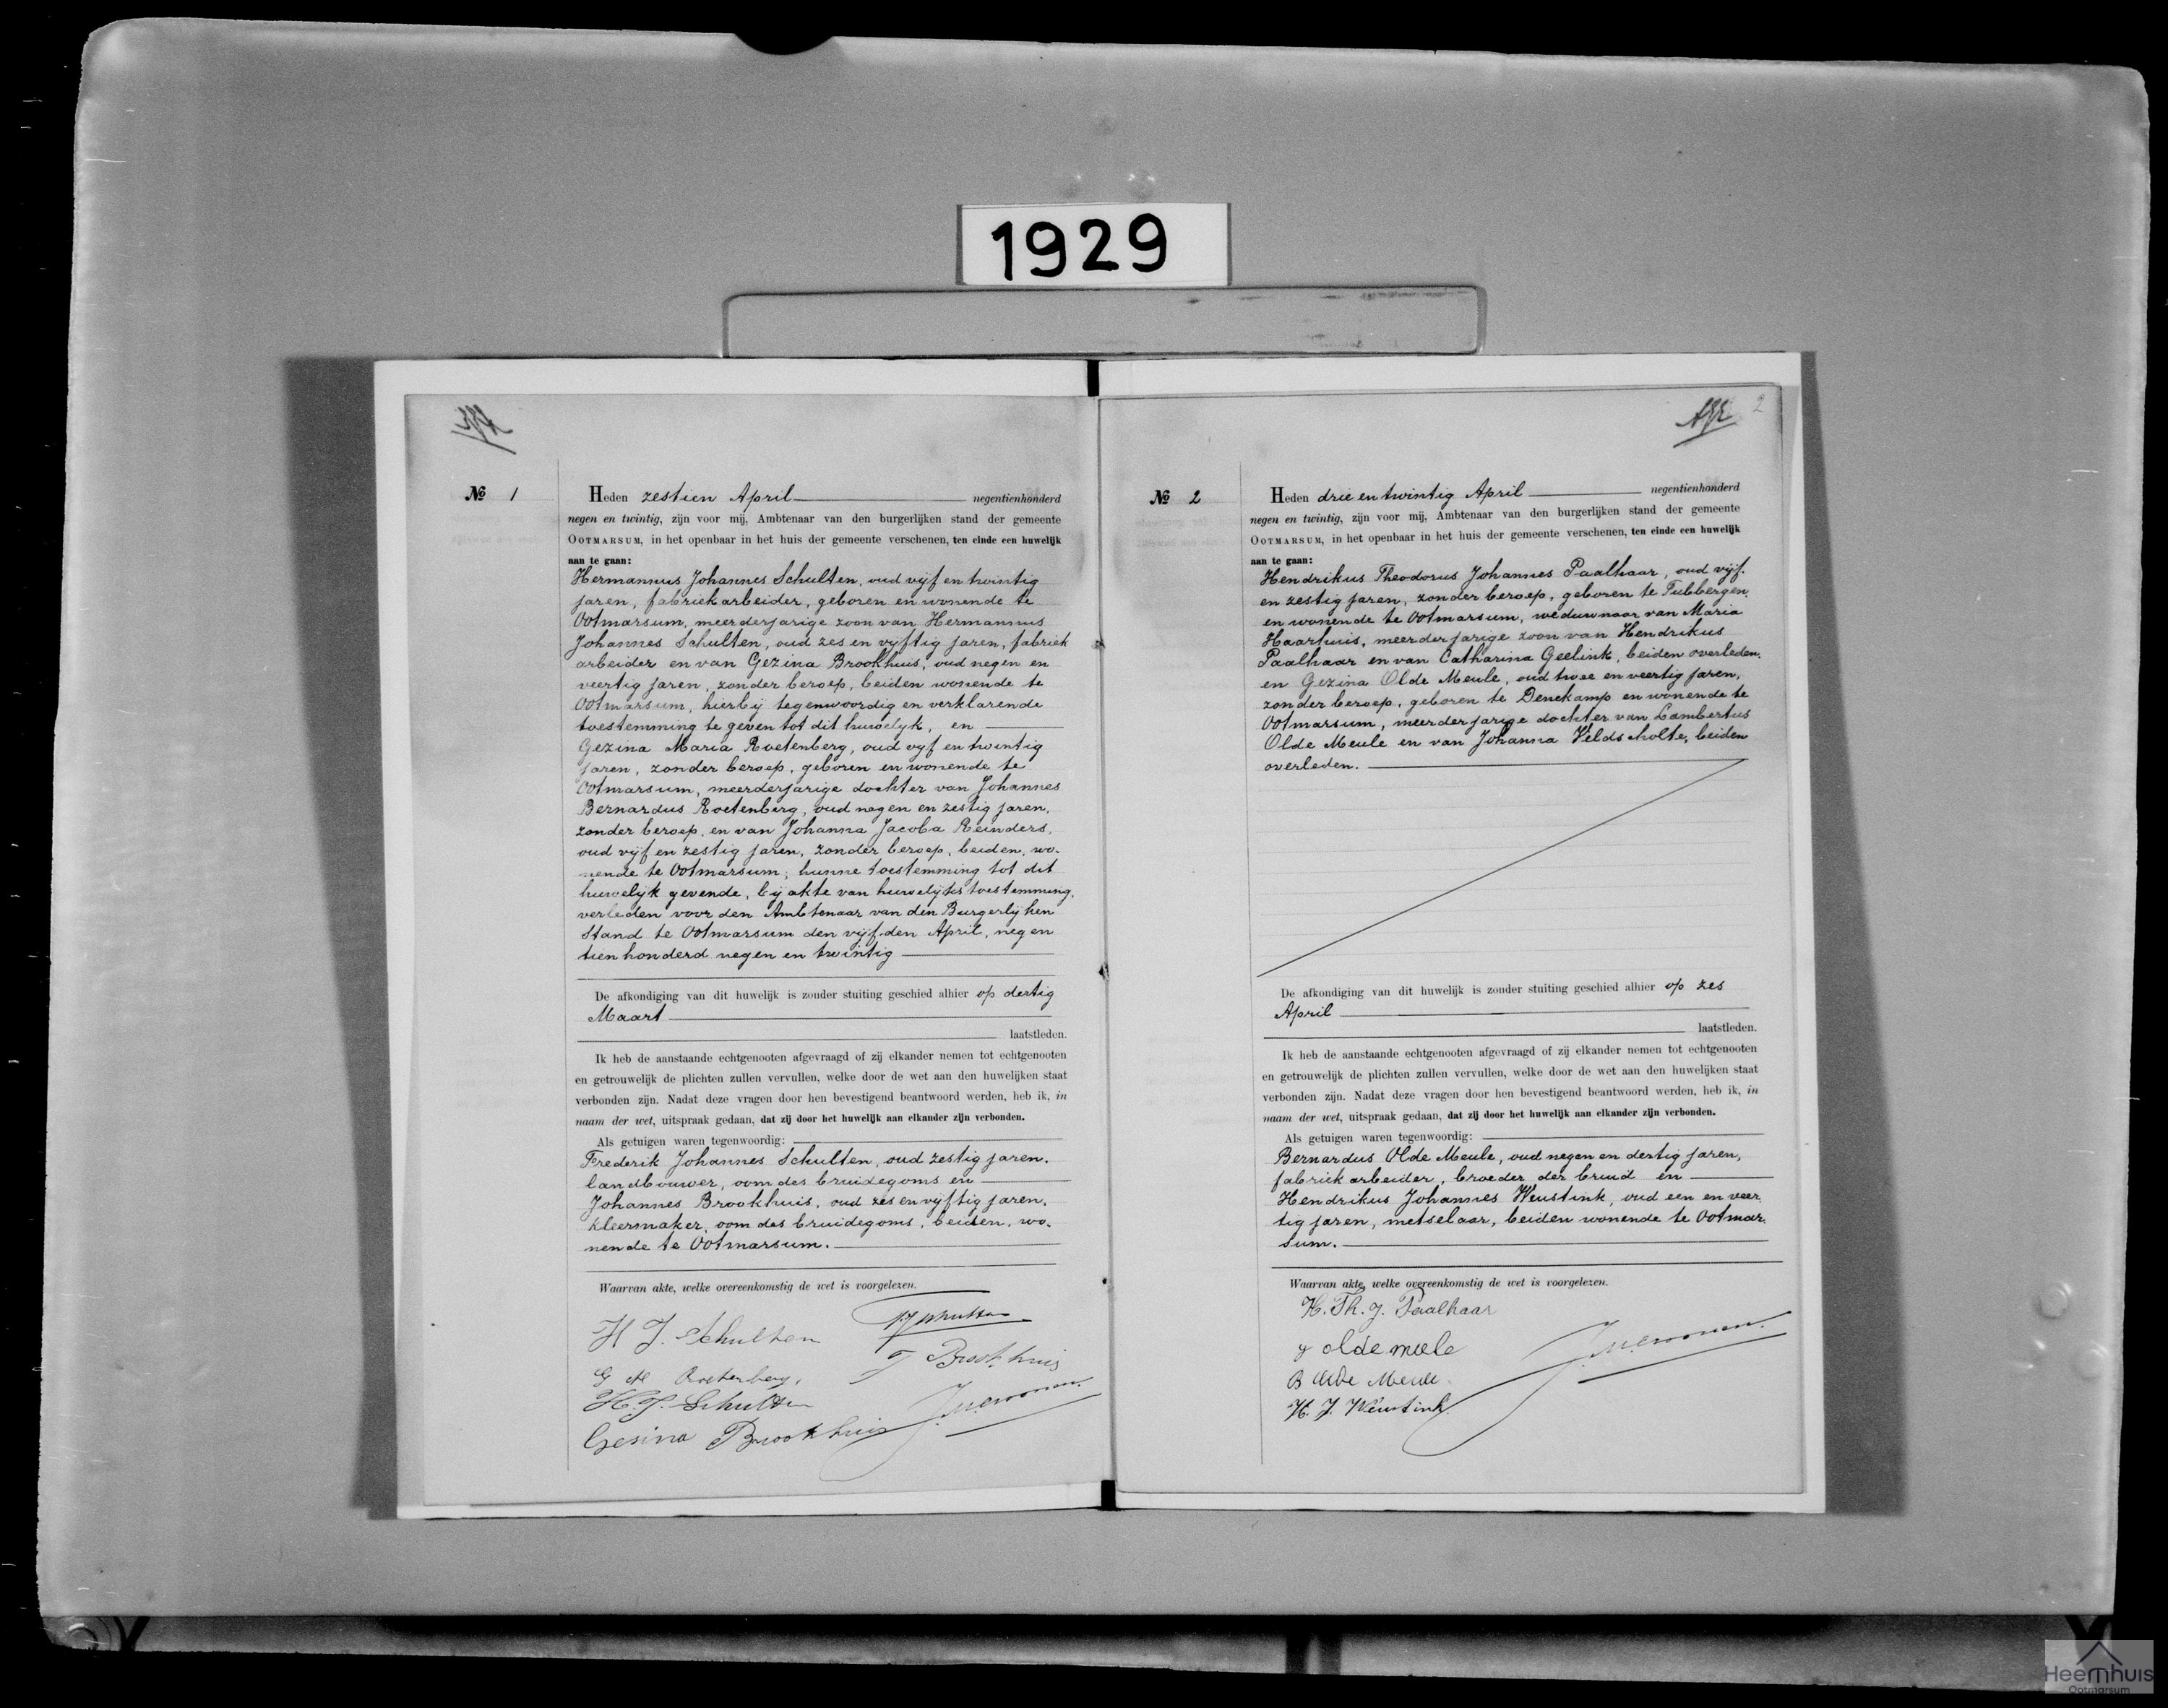 1929
No 1
Heden zestien April negentienhonderd
negen en twintig, zijn voor mij, Ambtenaar van den burgerlijken stand der gemeente
OOTMARSUM, in het openbaar in het huis der gemeente verschenen, ten einde een huwelijk
aan te gaan:
Hermannus Johannes Schulten, oud vijf en twintig
jaren, fabriekarbeider, geboren en wonende te
Ootmarsum, meerderjarige zoon van Hermannus
Johannes Schulten, oud zes en vijftig jaren, fabriek
arbeider en van Gezina Brookhuis, oud negen en
veertig jaren, zonder beroep, beiden wonende te
Ootmarsum, hierbij tegenwoordig en verklarende
toestemming te geven tot dit huwelyk, en
Gezina Maria Roetenberg, oud vyf en twintig
jaren, zonder beroep, geboren en wonende te
Ootmarsum, meerderjarige dochter van Johannes
Bernardus Roetenberg, oud negen en zestig jaren,
zonder beroep, en van Johanna Jacoba Reinders,
oud vijf en zestig jaren, zonder beroep, beiden, wo-
nende te Ootmarsum; hunne toestemming tot dit
huwelyk gevende, bij akte van huwelijkstoestemming,
verleden voor den Ambtenaar van den Burgerlijken
Stand te Ootmarsum den vijfden April, negen
tien honderd negen en twintig
De afkondiging van dit huwelijk is zonder stuiting geschied alhier op dertig
Maart
laatstleden.
Ik heb de aanstaande echtgenooten afgevraagd of zij elkander nemen tot echtgenooten
en getrouwelijk de plichten zullen vervullen, welke door de wet aan den huwelijken staat
verbonden zijn. Nadat deze vragen door hen bevestigend beantwoord werden, heb ik, in
naam der wet, uitspraak gedaan, dat zij door het huwelijk aan elkander zijn verbonden.
Als getuigen waren tegenwoordig:
Frederik Johannes Schulten, oud zestig jaren,
landbouwer, oom des bruidegoms en
Johannes Brookhuis, oud zes en vijftig jaren,
kleermaker, oom des bruidegoms, beiden, wo-
nende te Ootmarsum.
Waarvan akte, welke overeenkomstig de wet is voorgelezen.
H J. Schulten
J Brookhuis
G M Roetenberg,
H. J. Schulten
Gesina Brookhuis
2
No 2
Heden drie en twintig April negentienhonderd
negen en twintig, zijn voor mij, Ambtenaar van den burgerlijken stand der gemeente
OOTMARSUM, in het openbaar in het huis der gemeente verschenen, ten einde een huwelijk
aan te gaan:
Hendrikus Theodorus Johannes Paalhaar, oud vijf-
en zestig jaren, zonder beroep, geboren te Tubbergen,
en wonende te Ootmarsum, weduwnaar van Maria
Haarhuis, meerderjarige zoon van Hendrikus
Paalhaar en van Catharina Geelink, beiden overleden,
en Gezina Olde Meule, oud twee en veertig jaren,
zonder beroep, geboren te Denekamp en wonende te
Ootmarsum, meerderjarige dochter van Lambertus
Olde Meule en van Johanna Veldscholte, beiden
overleden.
De afkondiging van dit huwelijk is zonder stuiting geschied alhier op zes
April
laatstleden.
Ik heb de aanstaande echtgenooten afgevraagd of zij elkander nemen tot echtgenooten
en getrouwelijk de plichten zullen vervullen, welke door de wet aan den huwelijken staat
verbonden zijn. Nadat deze vragen door hen bevestigend beantwoord werden, heb ik, in
naam der wet, uitspraak gedaan, dat zij door het huwelijk aan elkander zijn verbonden.
Als getuigen waren tegenwoordig:
Bernardus Olde Meule, oud negen en dertig jaren,
fabriekarbeider, broeder der bruid en
Hendrikus Johannes Weustink, oud een en veer-
tig jaren, metselaar, beiden wonende te Ootmar-
sum.
Waarvan akte, welke overeenkomstig de wet is voorgelezen.
H. Th. J. Paalhaar
olde meule
B Olde Meule
H. J. Weustink
Heemhuis
Ootmarsum